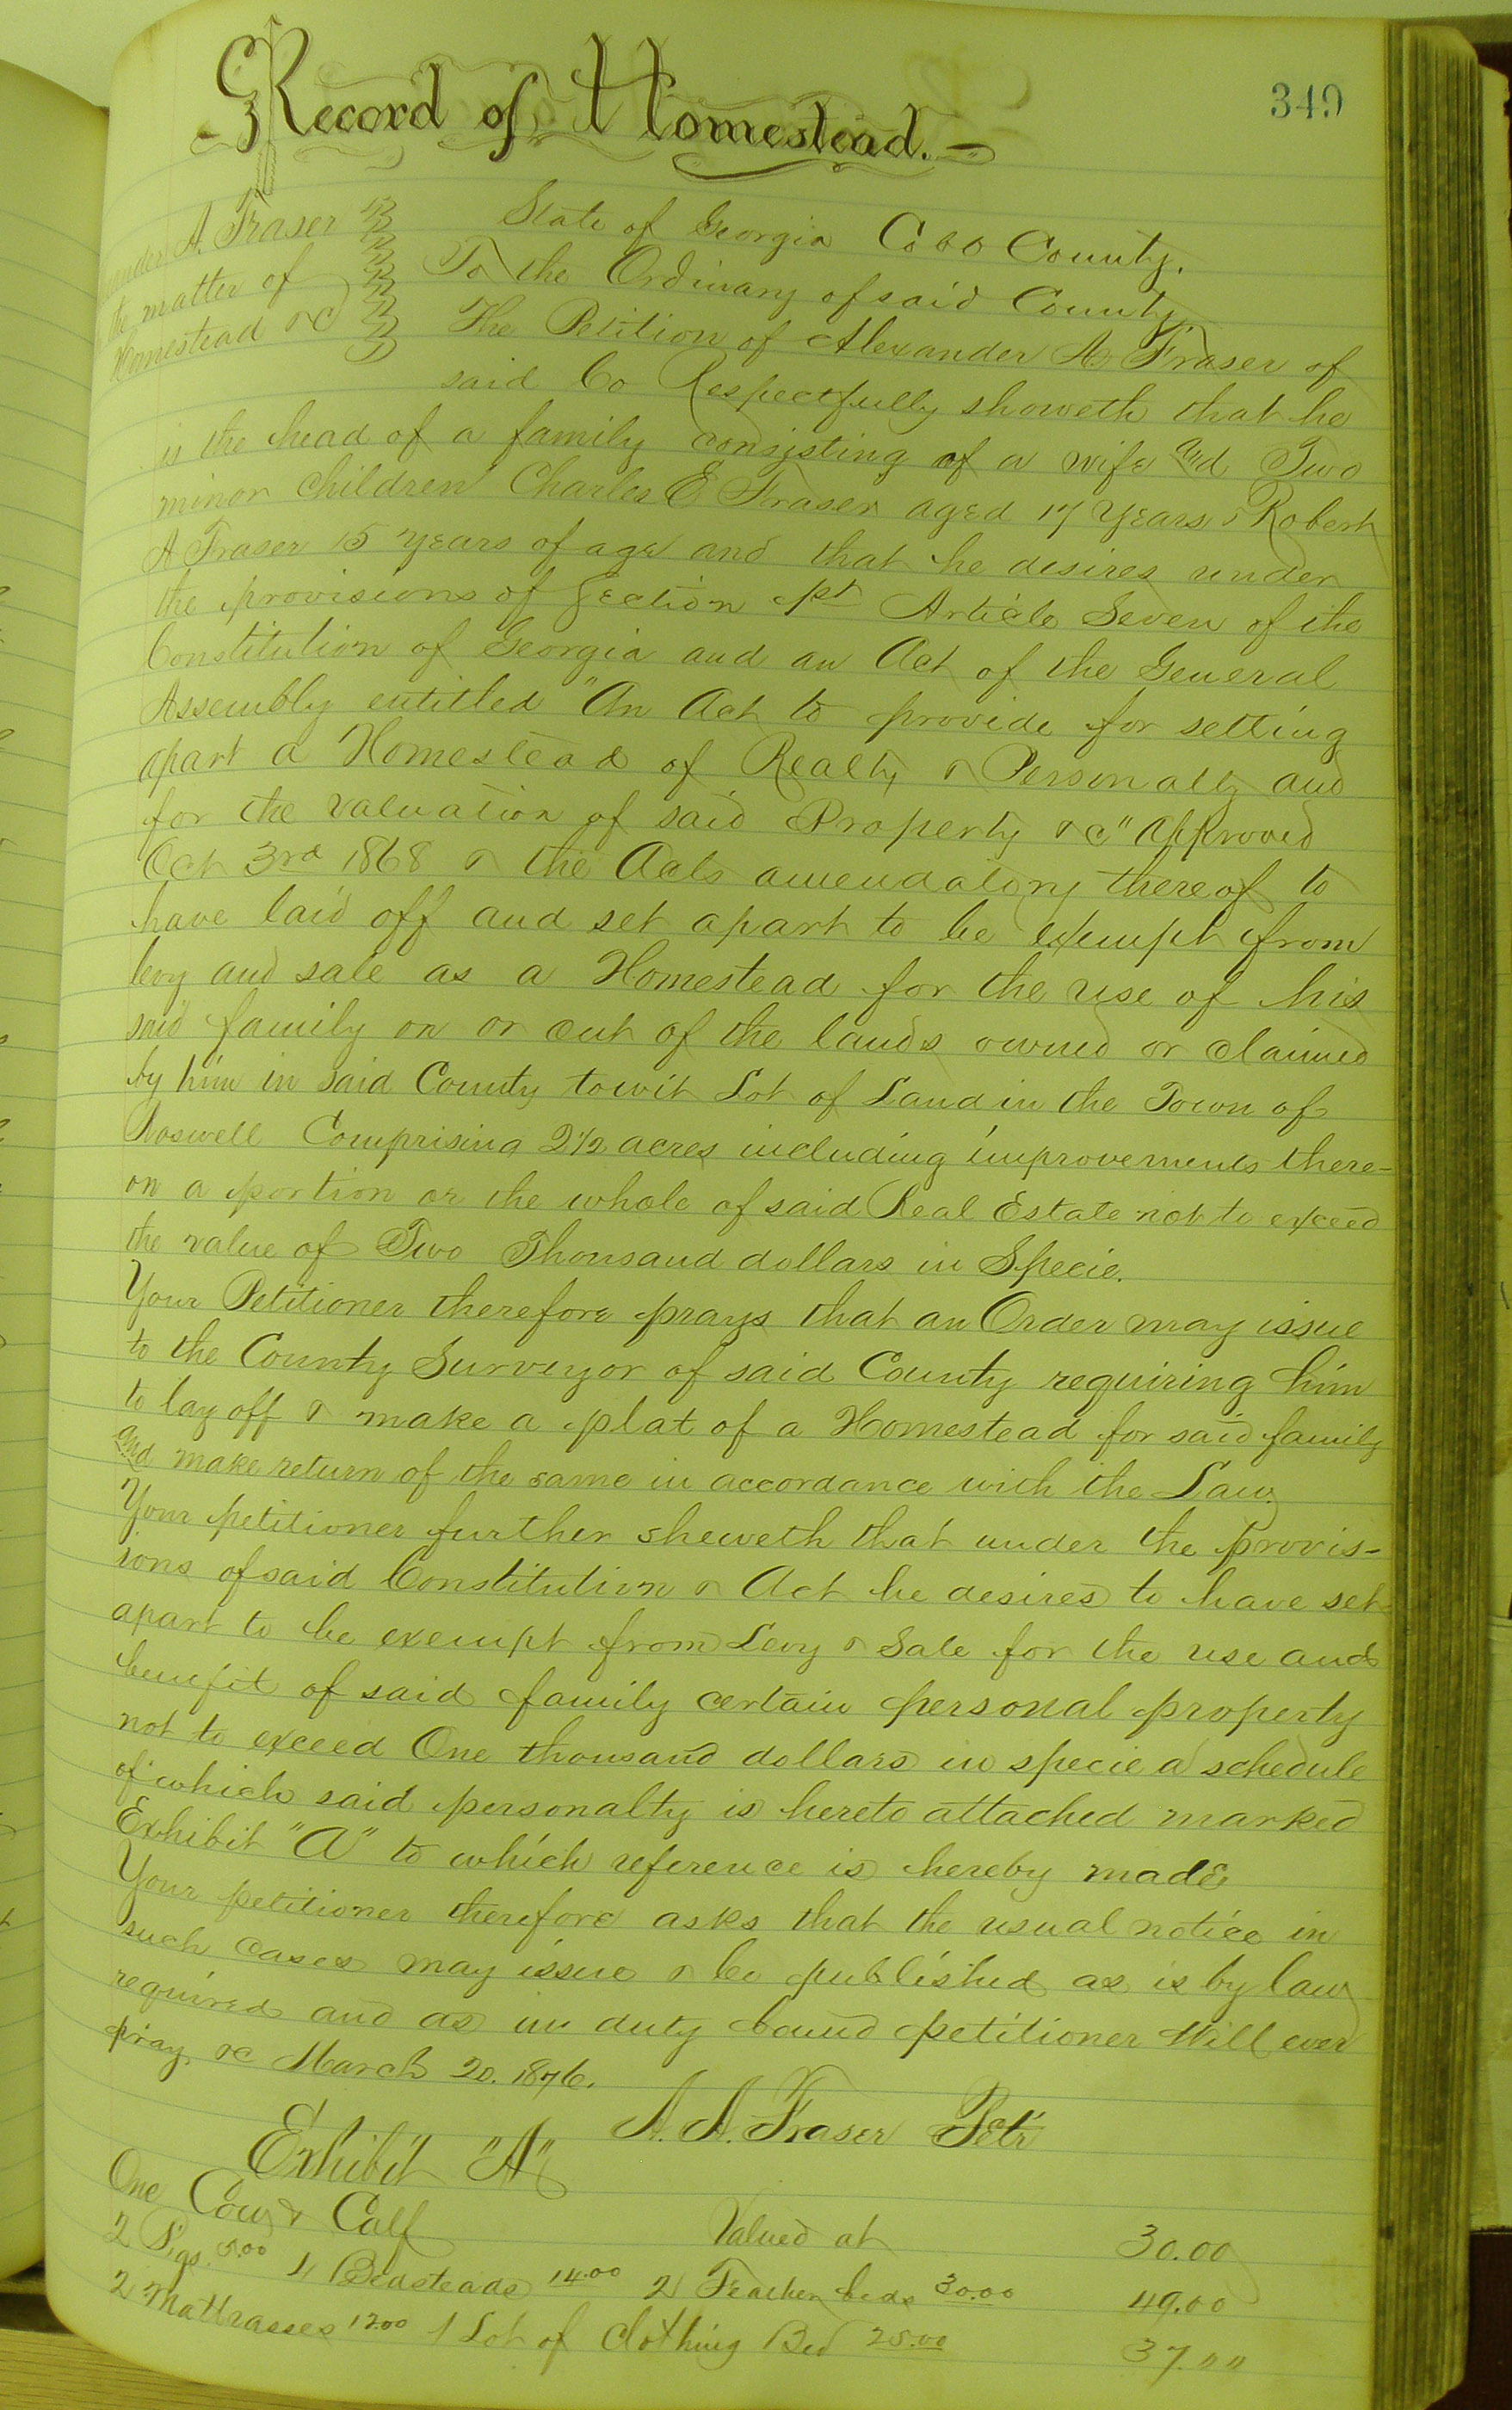 Record of Homestead.
349
A. Fraser
the matter of
Homestead &c
State of Georgia Cobb County.
To the Ordinary of said County
The Petition of Alexander A. Fraser of
said Co Respectfully showeth that he
is the head of a family consisting of a wife and Two
minor children Charles E Fraser aged 17 Years & Robert
A Fraser 15 years of age and that he desires under
the provisions of Section Article Seven of the
Constitution of Georgia and an Act of the General
Assembly entitled "An Act to provide for setting
apart a Homestead of Realty & Personalty and
for the valuation of said Property &c" Approved
Oct 3rd 1868 & the Acts amendatory thereof to
have laid off and set apart to be exempt from
levy and sale as a Homestead for the use of his
said family on or out of the lands owned or claimed
by him in said County towit Lot of Land in the Town of
Roswell Comprising 2 1/2 acres including improvements there-
on a portion or the whole of said Real Estate not to exceed
the value of Two Thousand dollars in Specie.
Your Petitioner therefore prays that an Order may issue
to the County Surveyor of said County requiring him
to lay off & make a plat of a Homestead for said family
and make return of the same in accordance with the Law
Your petitioner further sheweth that under the provis-
ions of said Constitution & Act he desires to have set
apart to be exempt from Levy & Sale for the use and
benefit of said family certain personal property
not to exceed One thousand dollars in specie a schedule
of which said personalty is hereto attached marked
Exhibit "A" to which reference is hereby made
Your petitioner therefore asks that the usual notice in
such cases may issue & be published as is by law
required and as in duty bound petitioner Will ever
pray &c March 20. 1876.
A. A. Fraser Petr
Exhibit "A"
One Cow & Calf Valued at 30.00
2 Pigs 5.00 4 Bedsteads 14.00 2 Feather beds 30.00 49.00
2 Mattrasses 12.00 1 Lot of clothing Bed 25.00 37.""